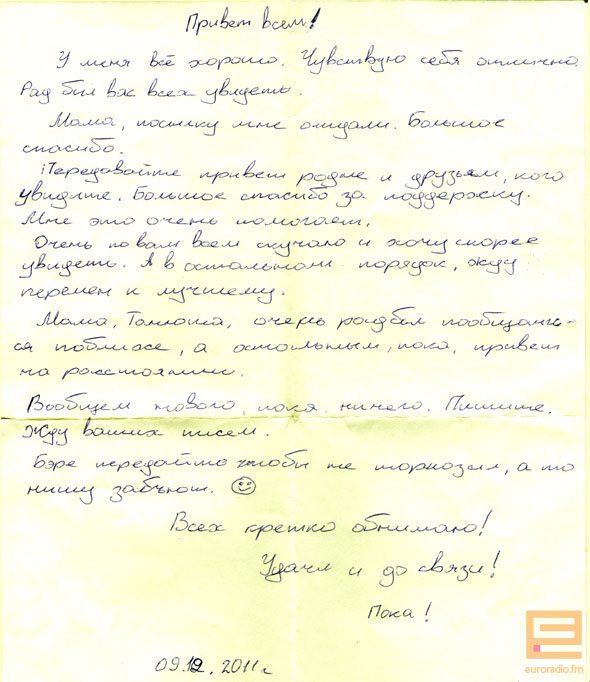 Привет всем!
У меня всё хорошо. Чувствую себя отлично.
Рад был вас всех увидеть.
Мама, посылку мне отдали. Большое
спасибо.
Передавайте привет родне и друзьям, кого
увидите. Большое спасибо за поддержку.
Мне это очень помогает.
Очень по вам всем скучаю и хочу скорее
увидеть. А в остальном порядок, жду
перемен к лучшему.
Мама, Танюша, очень рад был пообщать-
ся поближе, а остальным, пока, привет
на расстоянии.
Вообщем нового, пока ничего. Пишите.
Жду ваших писем.
Бэре передайте чтобы не тормозил, а то
нишу забьют.
Всех крепко обнимаю!
Удачи и до связи!
Пока!
09.12.2011г
euroradio.fm